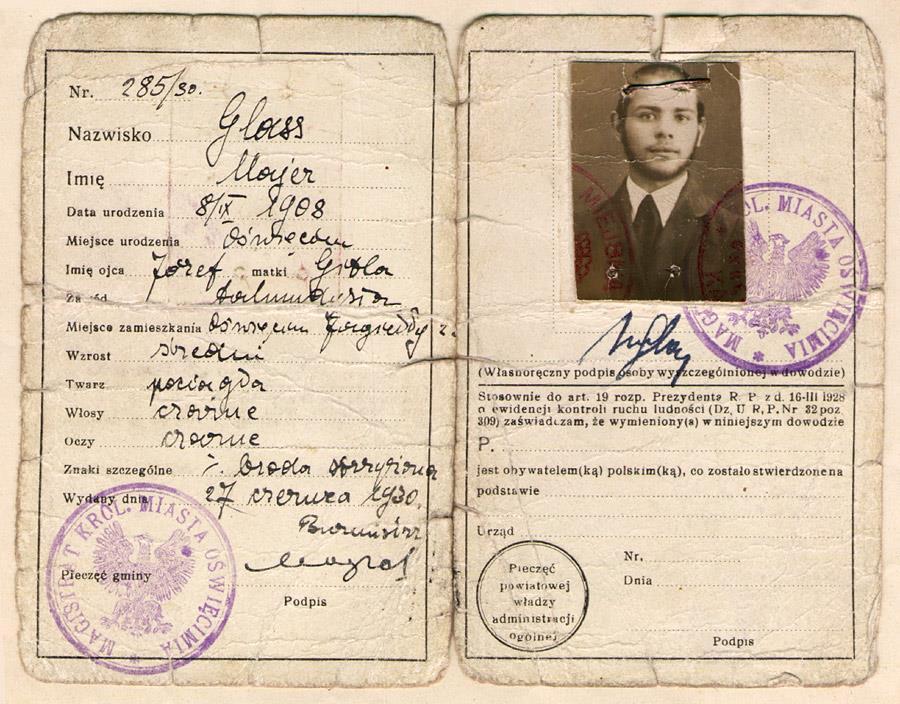 Nr. 285/30.
Nazwisko Glass
Imię Majer
Data urodzenia 8/IX 1908
Miejsce urodzenia Oświęcim
Imię ojca Józef matki Gitla
Zawód
Miejsce zamieszkania Oświęcim
Wzrost średni
Twarz pociągła
Włosy czarne
Oczy czarne
Znaki szczególne broda
Wydany dnia 27 czerwca 1930.
Burmistrz
Pieczęć gminy
Podpis
MAGISTRAT KRÓL. MIASTA OŚWIĘCIMIA
KRÓL. MIASTA OŚWIĘCIMIA
(Własnoręczny podpis osoby wyszczególnionej w dowodzie)
Stosownie do art. 19 rozp. Prezydenta R. P. z d. 16-III 1928
o ewidencji kontroli ruchu ludności (Dz. U R. P. Nr 32 poz
309) zaświadczam, że wymieniony(a) w niniejszym dowodzie
P.
jest obywatelem(ką) polskim(ką), co zostało stwierdzone na
podstawie
Urząd
Nr.
Dnia
Pieczęć
powiatowej
władzy
administracji
ogólnej
Podpis